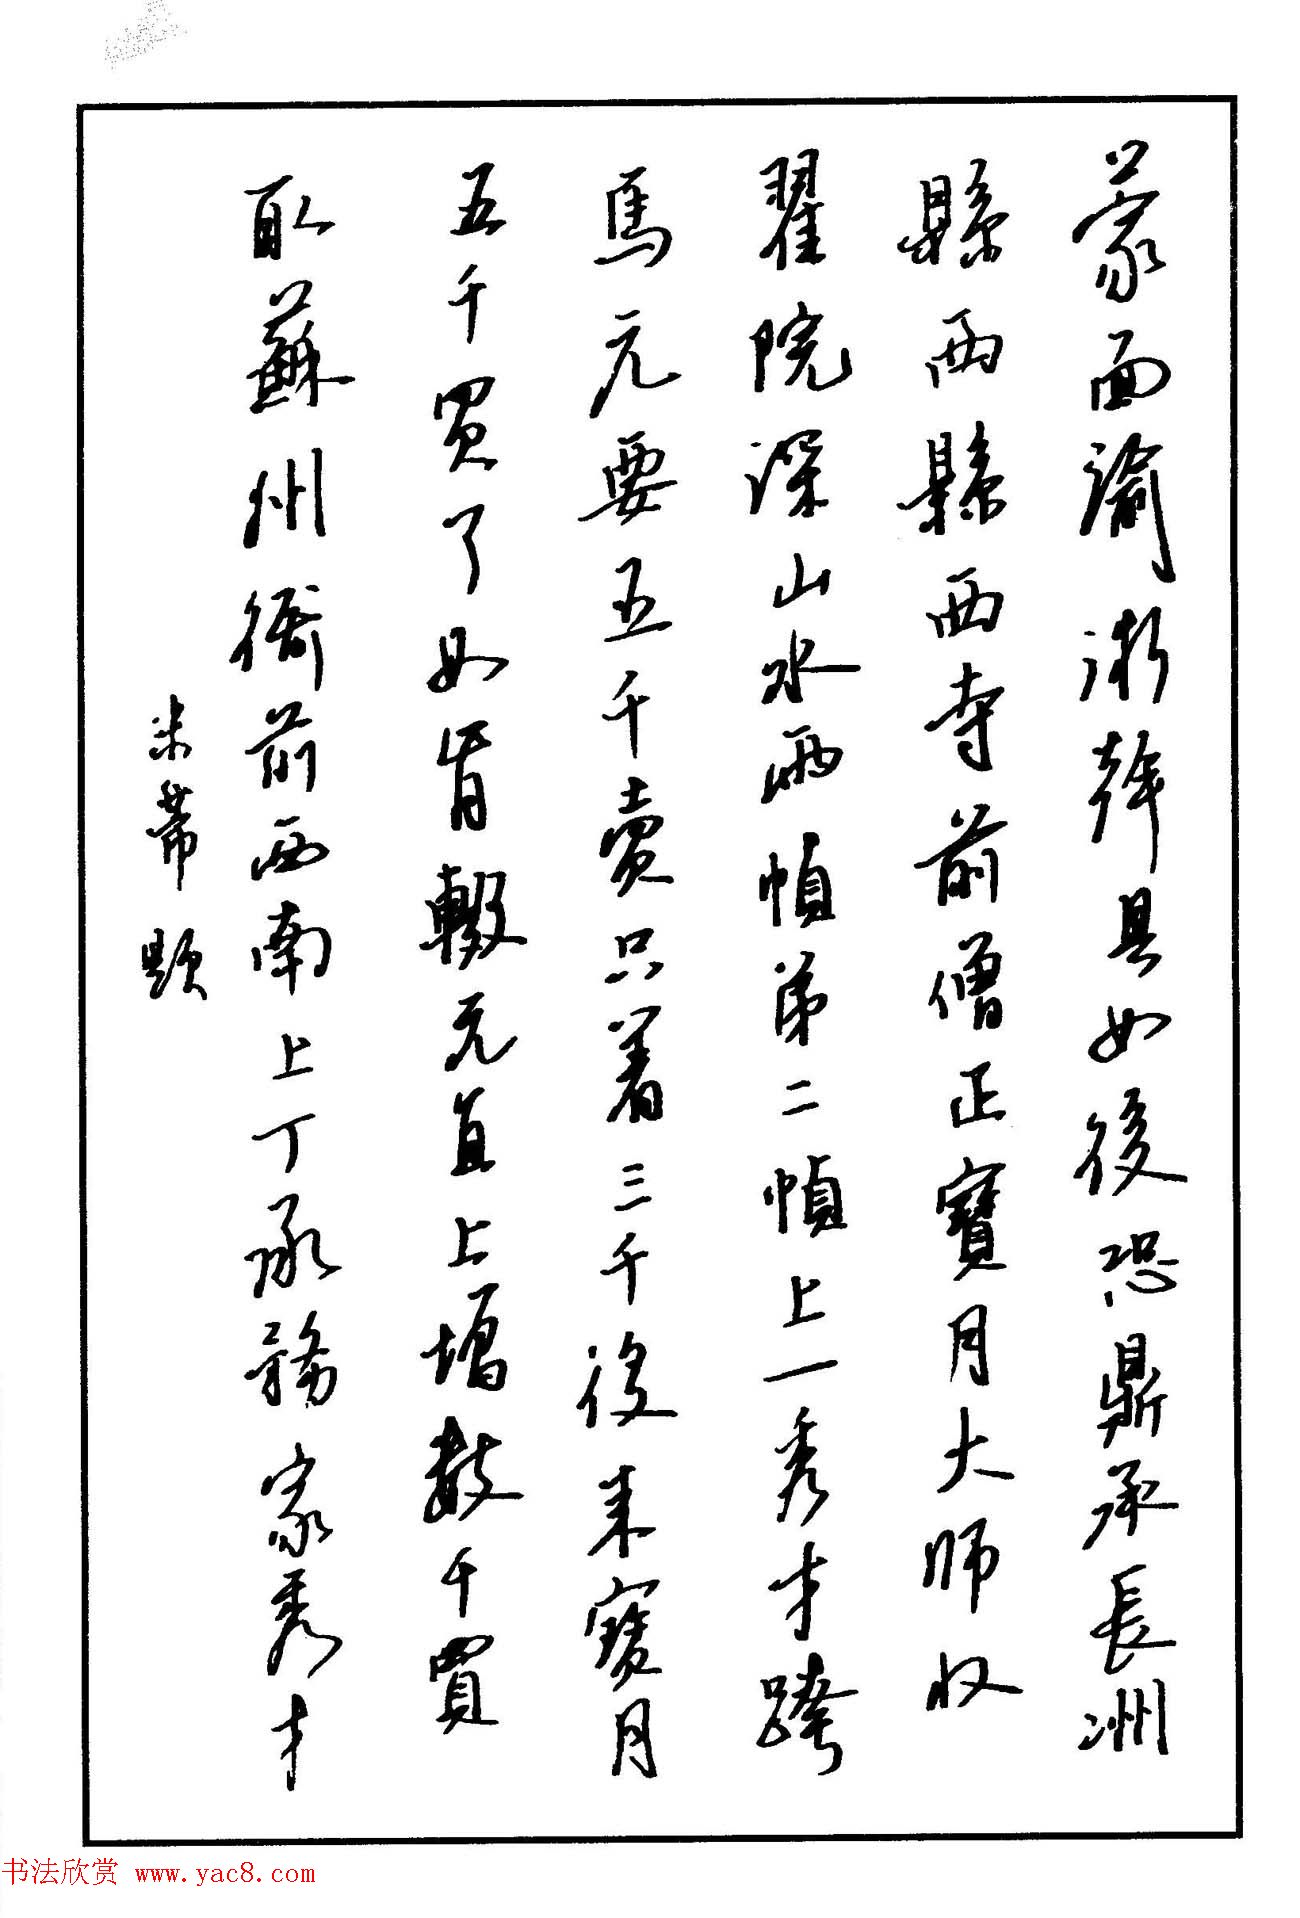 蒙面諭浙幹具如後恐鼎承長洲
縣兩縣西寺前僧正寶月大師收
翟院深山水兩幀第二幀上一秀才跨
馬元要五千賣只著三千後来寶月
五千買了如肯輟元直上增數千買
取蘇州衙前西南上丁承務家秀才
米芾題
书法欣赏 www.yac8.com